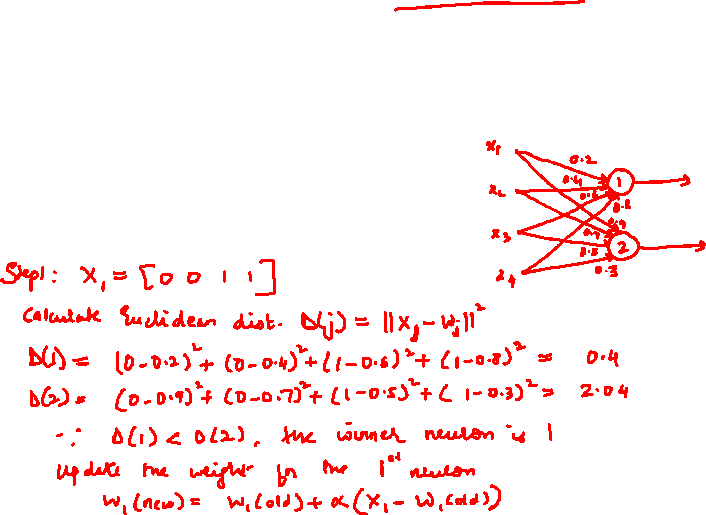 x1
0.2
0.4
0.6
1
x2
0.8
0.9
x3
0.7
2
0.5
x4
0.3
Step1: X₁ = [0 0 1 1]
Calculate Euclidean dist. D(j) = ||Xj - Wj||²
D(1) = (0-0.2)² + (0-0.4)² + (1-0.6)² + (1-0.8)² = 0.4
D(2) = (0-0.9)² + (0-0.7)² + (1-0.5)² + (1-0.3)² = 2.04
∵ D(1) < D(2), the winner neuron is 1
update the weights for the 1st neuron
W₁(new) = W₁(old) + α(X₁ - W₁(old))